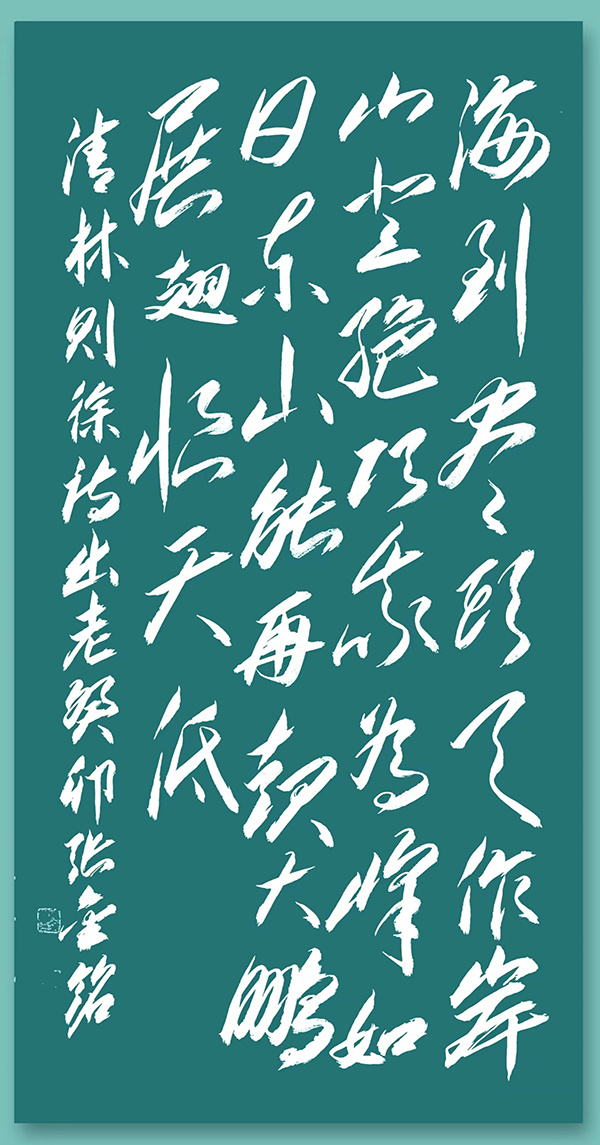 海到尽头天作岸
山登绝顶我为峰如
日东山能再起大鹏
展翅恨天低
清林则徐诗出老癸卯张金铭